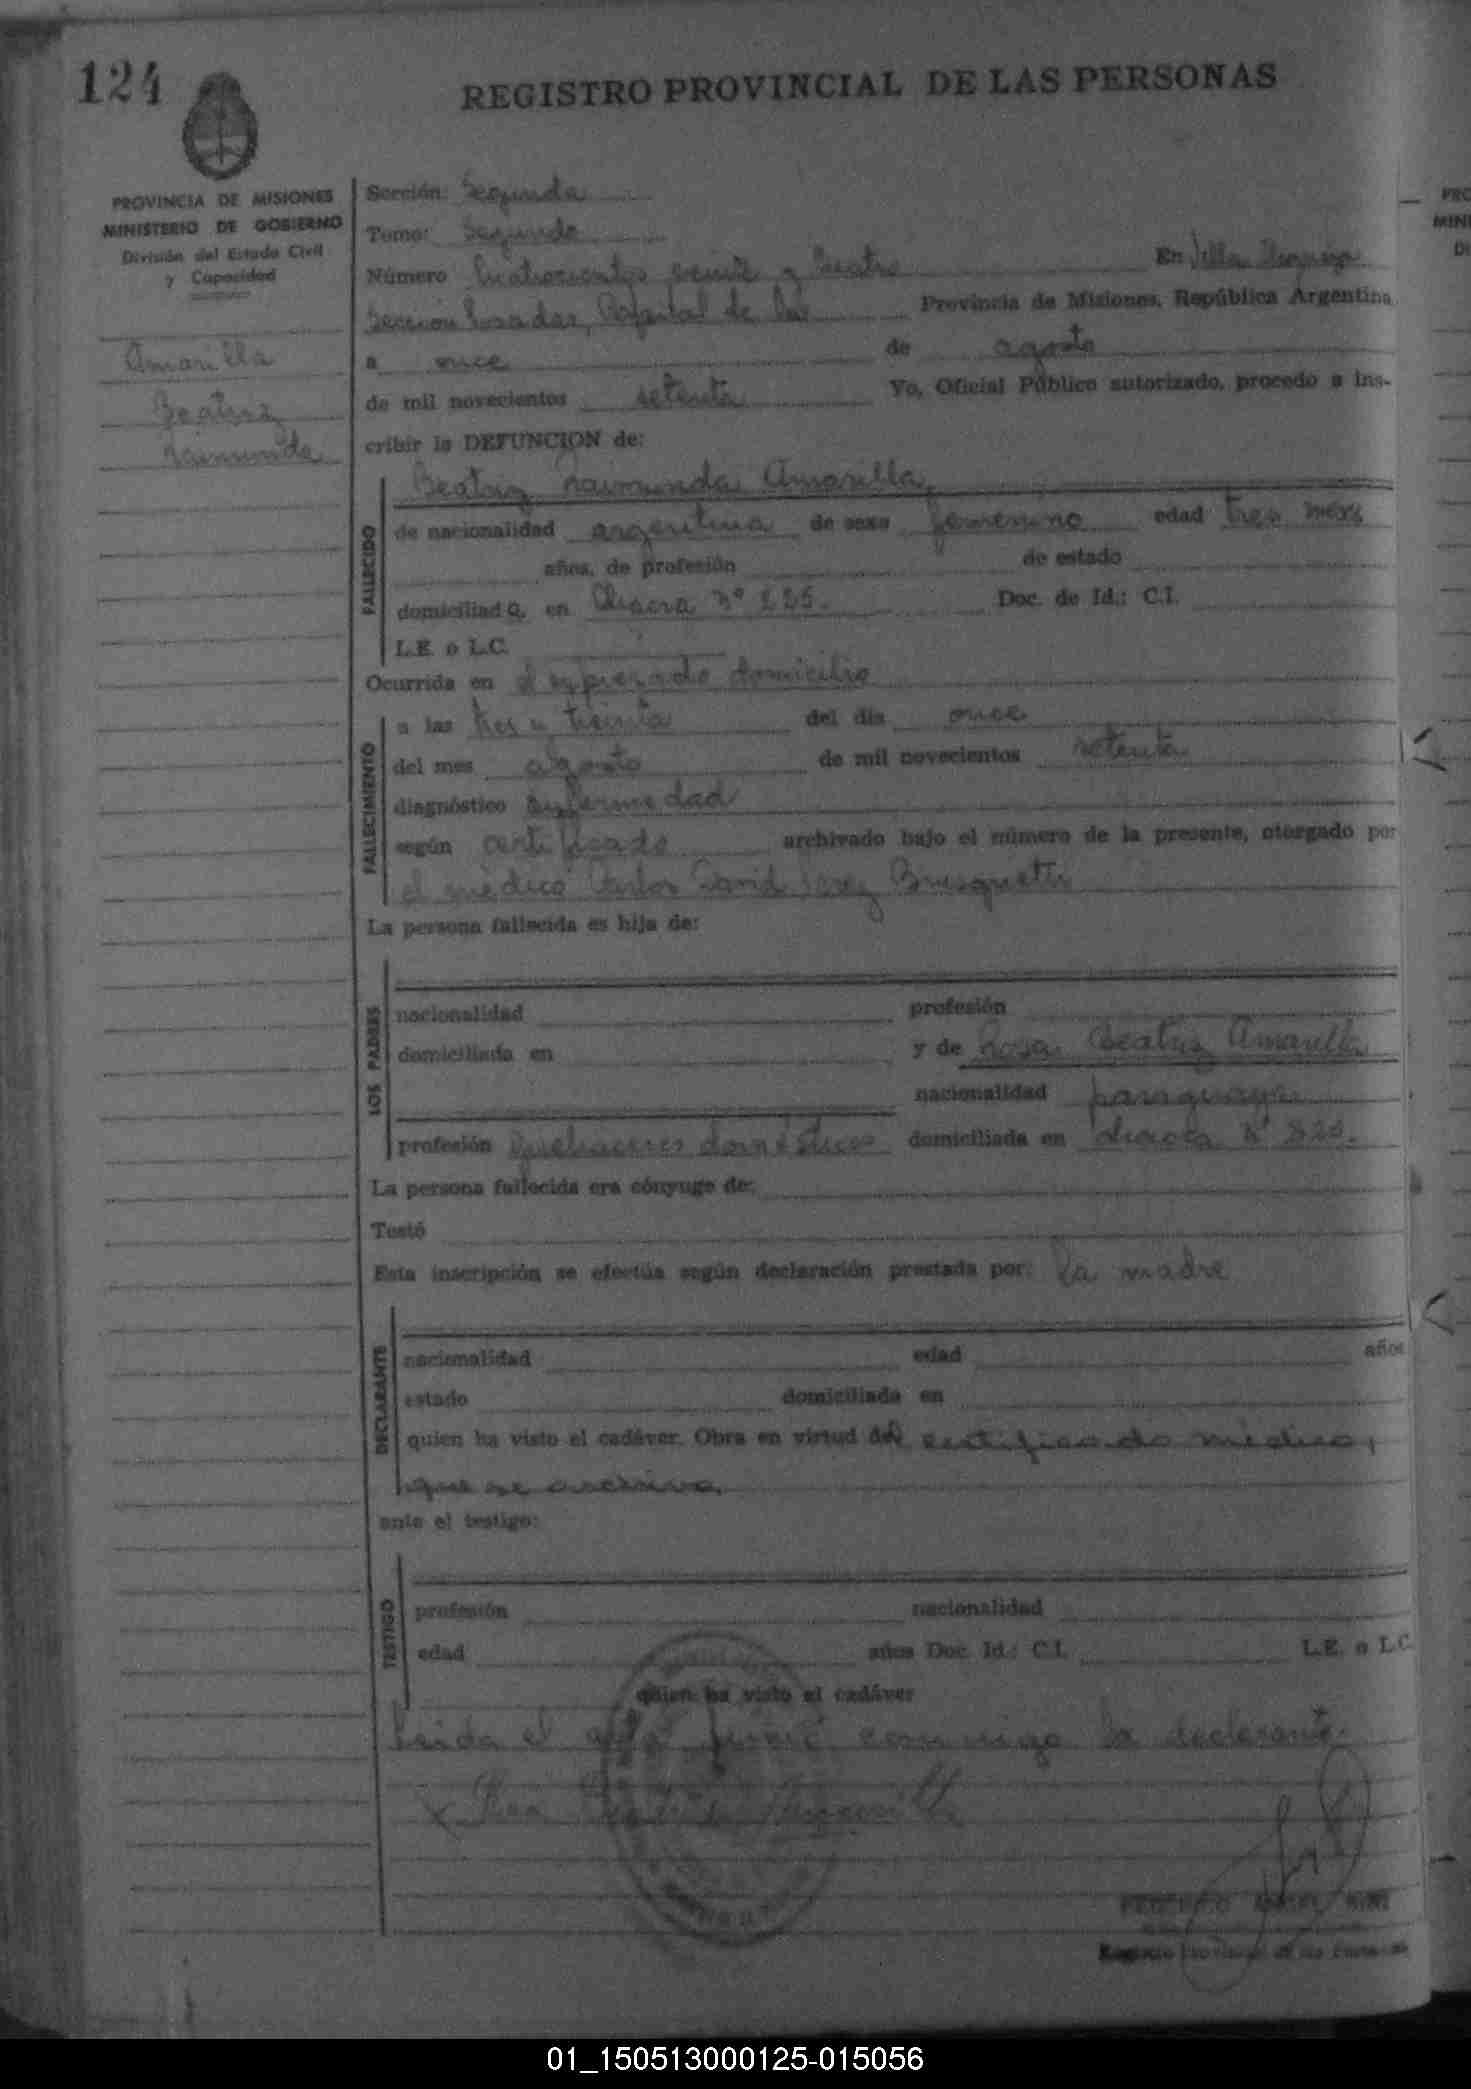 124
REGISTRO PROVINCIAL DE LAS PERSONAS
PROVINCIA DE MISIONES
MINISTERIO DE GOBIERNO
División del Estado Civil
y Capacidad
Amarilla
Beatriz
Raimunda
Sección: Segunda
Tomo: Segundo
Número Cuatrocientos veinte y cuatro En Villa Urquiza
Sección Posadas, Capital de la Provincia de Misiones, República Argentina,
a once de agosto
de mil novecientos setenta Yo, Oficial Público autorizado, procedo a ins-
cribir la DEFUNCION de:
FALLECIDO
Beatriz Raimunda Amarilla
de nacionalidad argentina de sexo femenino edad tres meses
años, de profesión de estado
domiciliada en Chacra Nº Doc. de Id.: C.I.
L.E. o L.C.
Ocurrida en el expresado domicilio
FALLECIMIENTO
a las tres y treinta del día once
del mes agosto de mil novecientos setenta
diagnóstico enfermedad
según certificado archivado bajo el número de la presente, otorgado por
el médico Carlos David Brusquetti
La persona fallecida es hija de:
LOS PADRES
nacionalidad profesión
domiciliada en y de Rosa Beatriz Amarilla
nacionalidad paraguaya
profesión quehaceres domésticos domiciliada en chacra Nº
La persona fallecida era cónyuge de:
Testó
Esta inscripción se efectúa según declaración prestada por: la madre
DECLARANTE
nacionalidad edad años
estado domiciliada en
quien ha visto el cadáver. Obra en virtud del certificado médico,
que se archiva
ante el testigo:
TESTIGO
profesión nacionalidad
edad años Doc. Id.: C.I. L.E. o L.C.
quien ha visto el cadáver
Leida el acta firmó conmigo la declarante.
x Rosa Beatriz Amarilla
ANGEL
Registro Provincial de las Personas
PRO
MINI
Di
01_150513000125-015056